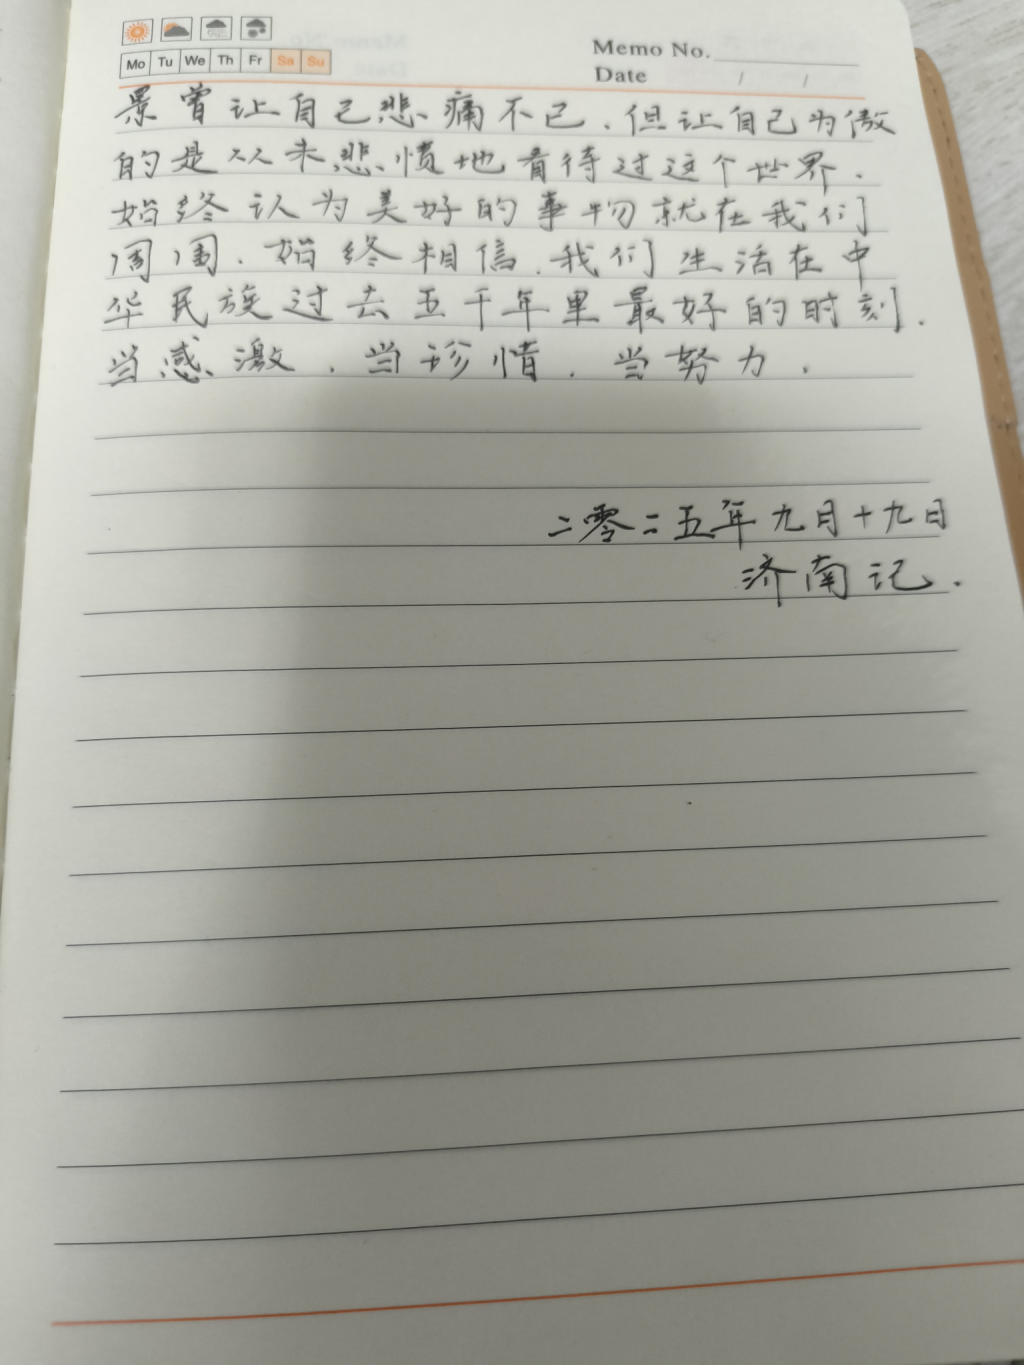 Mo Tu We Th Fr Sa Su
Memo No.
Date / /
景曾让自己悲痛不已.但让自己为傲
的是从未悲愤地看待过这个世界.
始终认为美好的事物就在我们
周围.始终相信.我们生活在中
华民族过去五千年里最好的时刻.
当感激.当珍惜.当努力.
二零二五年九月十九日
济南记.